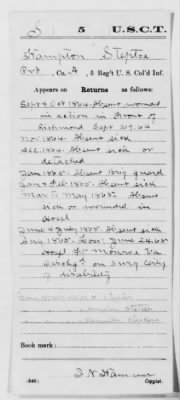 S 5 U.S.C.T.
Hampton Steptoe
Pvt, Co. A, 5 Reg't U. S. Col'd Inf.
Appears on Returns as follows:
Sept & Oct 1864 Absent wounded
in action in front of
Richmond Sept 29, 64
Nov 1864 Absent sick
Dec 1864 Absent sick or
detached
Jan 1865 Absent Brig guard
Jan & Feb 1865 Absent sick
Mar to May 1865 Absent
sick or wounded in
Hospl
June & July 1865 Absent sick
Aug 1865 Loss June 24, 65
Hospl Ft Monroe Va
Dischgd on Surg Certif
of disability
Book mark:
(546) Copyist.